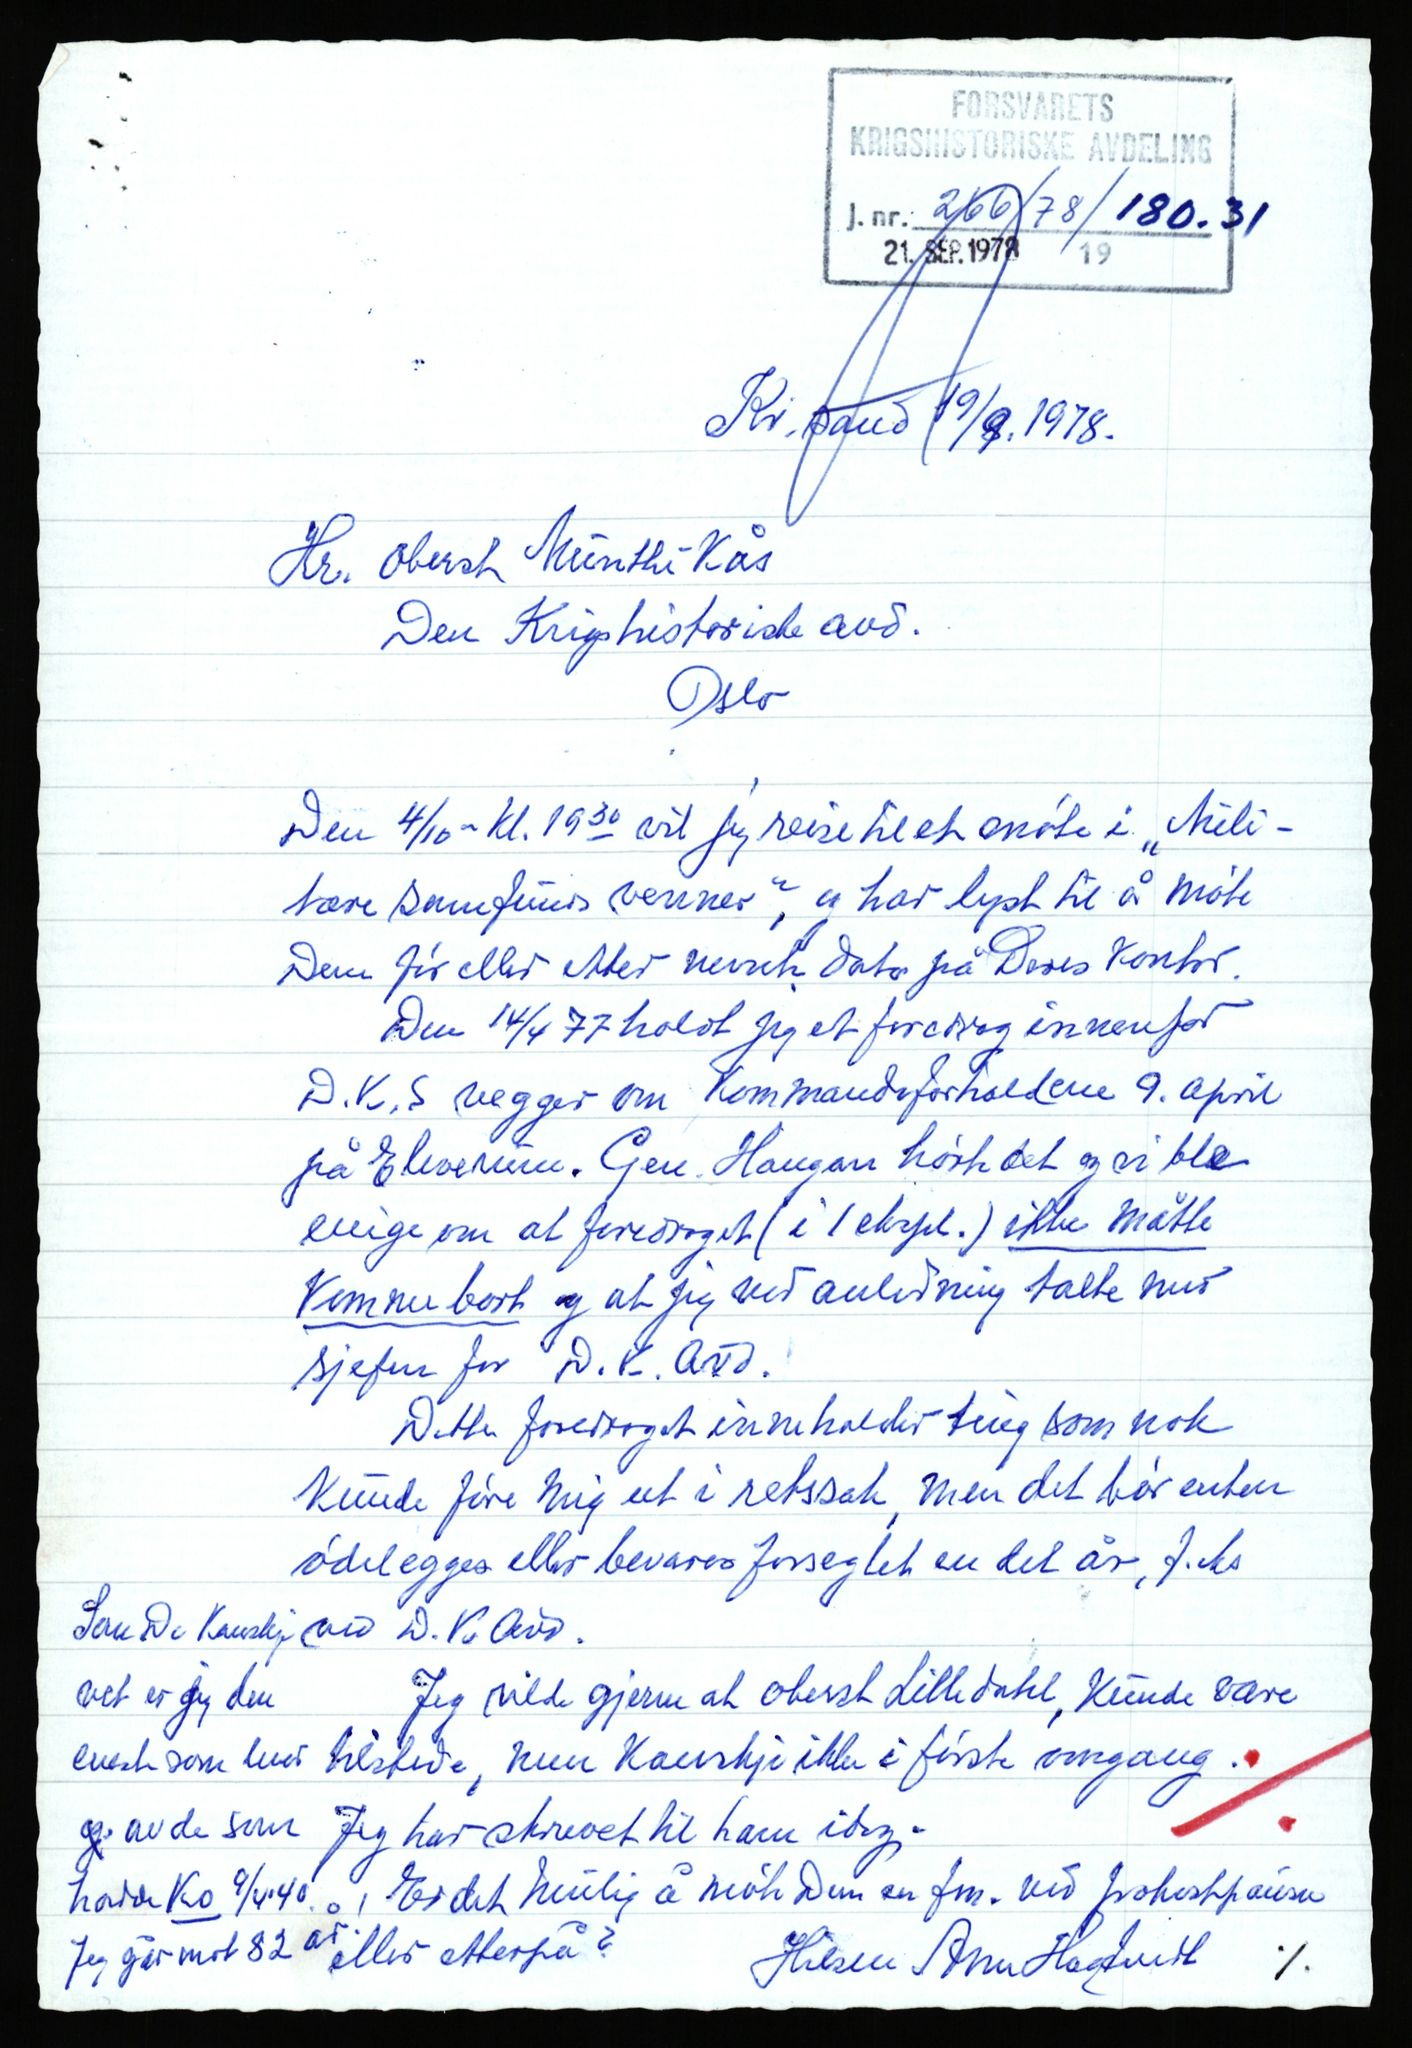 FORSVARETS
KRIGSHISTORISKE AVDELING
J. nr. 266/78/180.31
21. SEP. 1978 19
Kr. sand 19/9. 1978.
Hr. oberst Munthe Kås
Den Krigshistoriske avd.
Oslo
Den 4/10 - Kl. 19 30 vil jeg reise til et møte i „Mili-
tære samfunds venner", og har lyst til å møte
Dem før eller etter nevnte dato på Deres Kontor.
Den 14/4 77 holdt jeg et foredrag innenfor
D.K.S vegger om Kommandoforholdene 9. april
på Elverum. Gen. Haugan hørte det og vi ble
enige om at foredraget (i 1 ekspl.) ikke måtte
Komme bort og at jeg ved anledning talte med
sjefen for D.K. Avd.
Dette foredraget inneholder ting som nok
Kunde føre mig ut i retssak, men det bør enten
ødelegges eller bevares forseglet en del år, f.eks
ved D.K. Avd.
Jeg vilde gjerne at oberst Lilledahl, Kunde være
tilstede, men Kanskje ikke i første omgang.
Jeg har skrevet til ham idag.
Er det mulig å møte Dem en fm. ved frokostpausen
eller etterpå?
Hilsen Arne Hagtvedt ./.
Som De Kanskje
vet er jeg den
eneste som lever
av de som
hadde Ko 9/4.40.
Jeg går mot 82 år